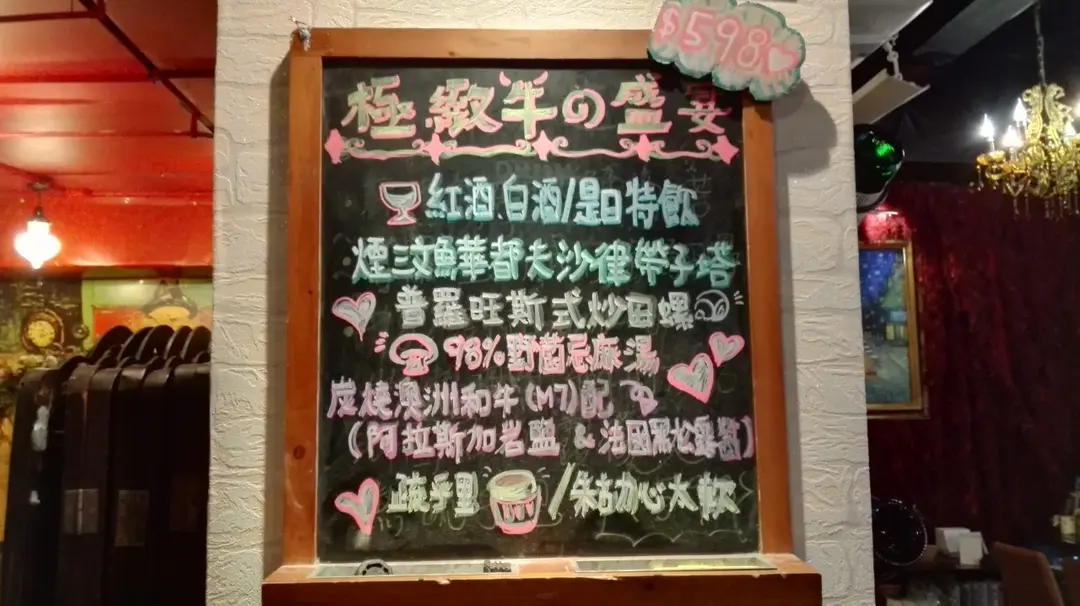 $598
極緻牛の盛宴
紅酒、白酒/是日特飲
煙三文魚華都夫沙律帶子塔
普羅旺斯式炒田螺
98%野菌忌廉湯
炭燒澳洲和牛(M7)配
(阿拉斯加岩鹽 & 法國黑松露醬)
疏乎里 / 朱古力心太軟